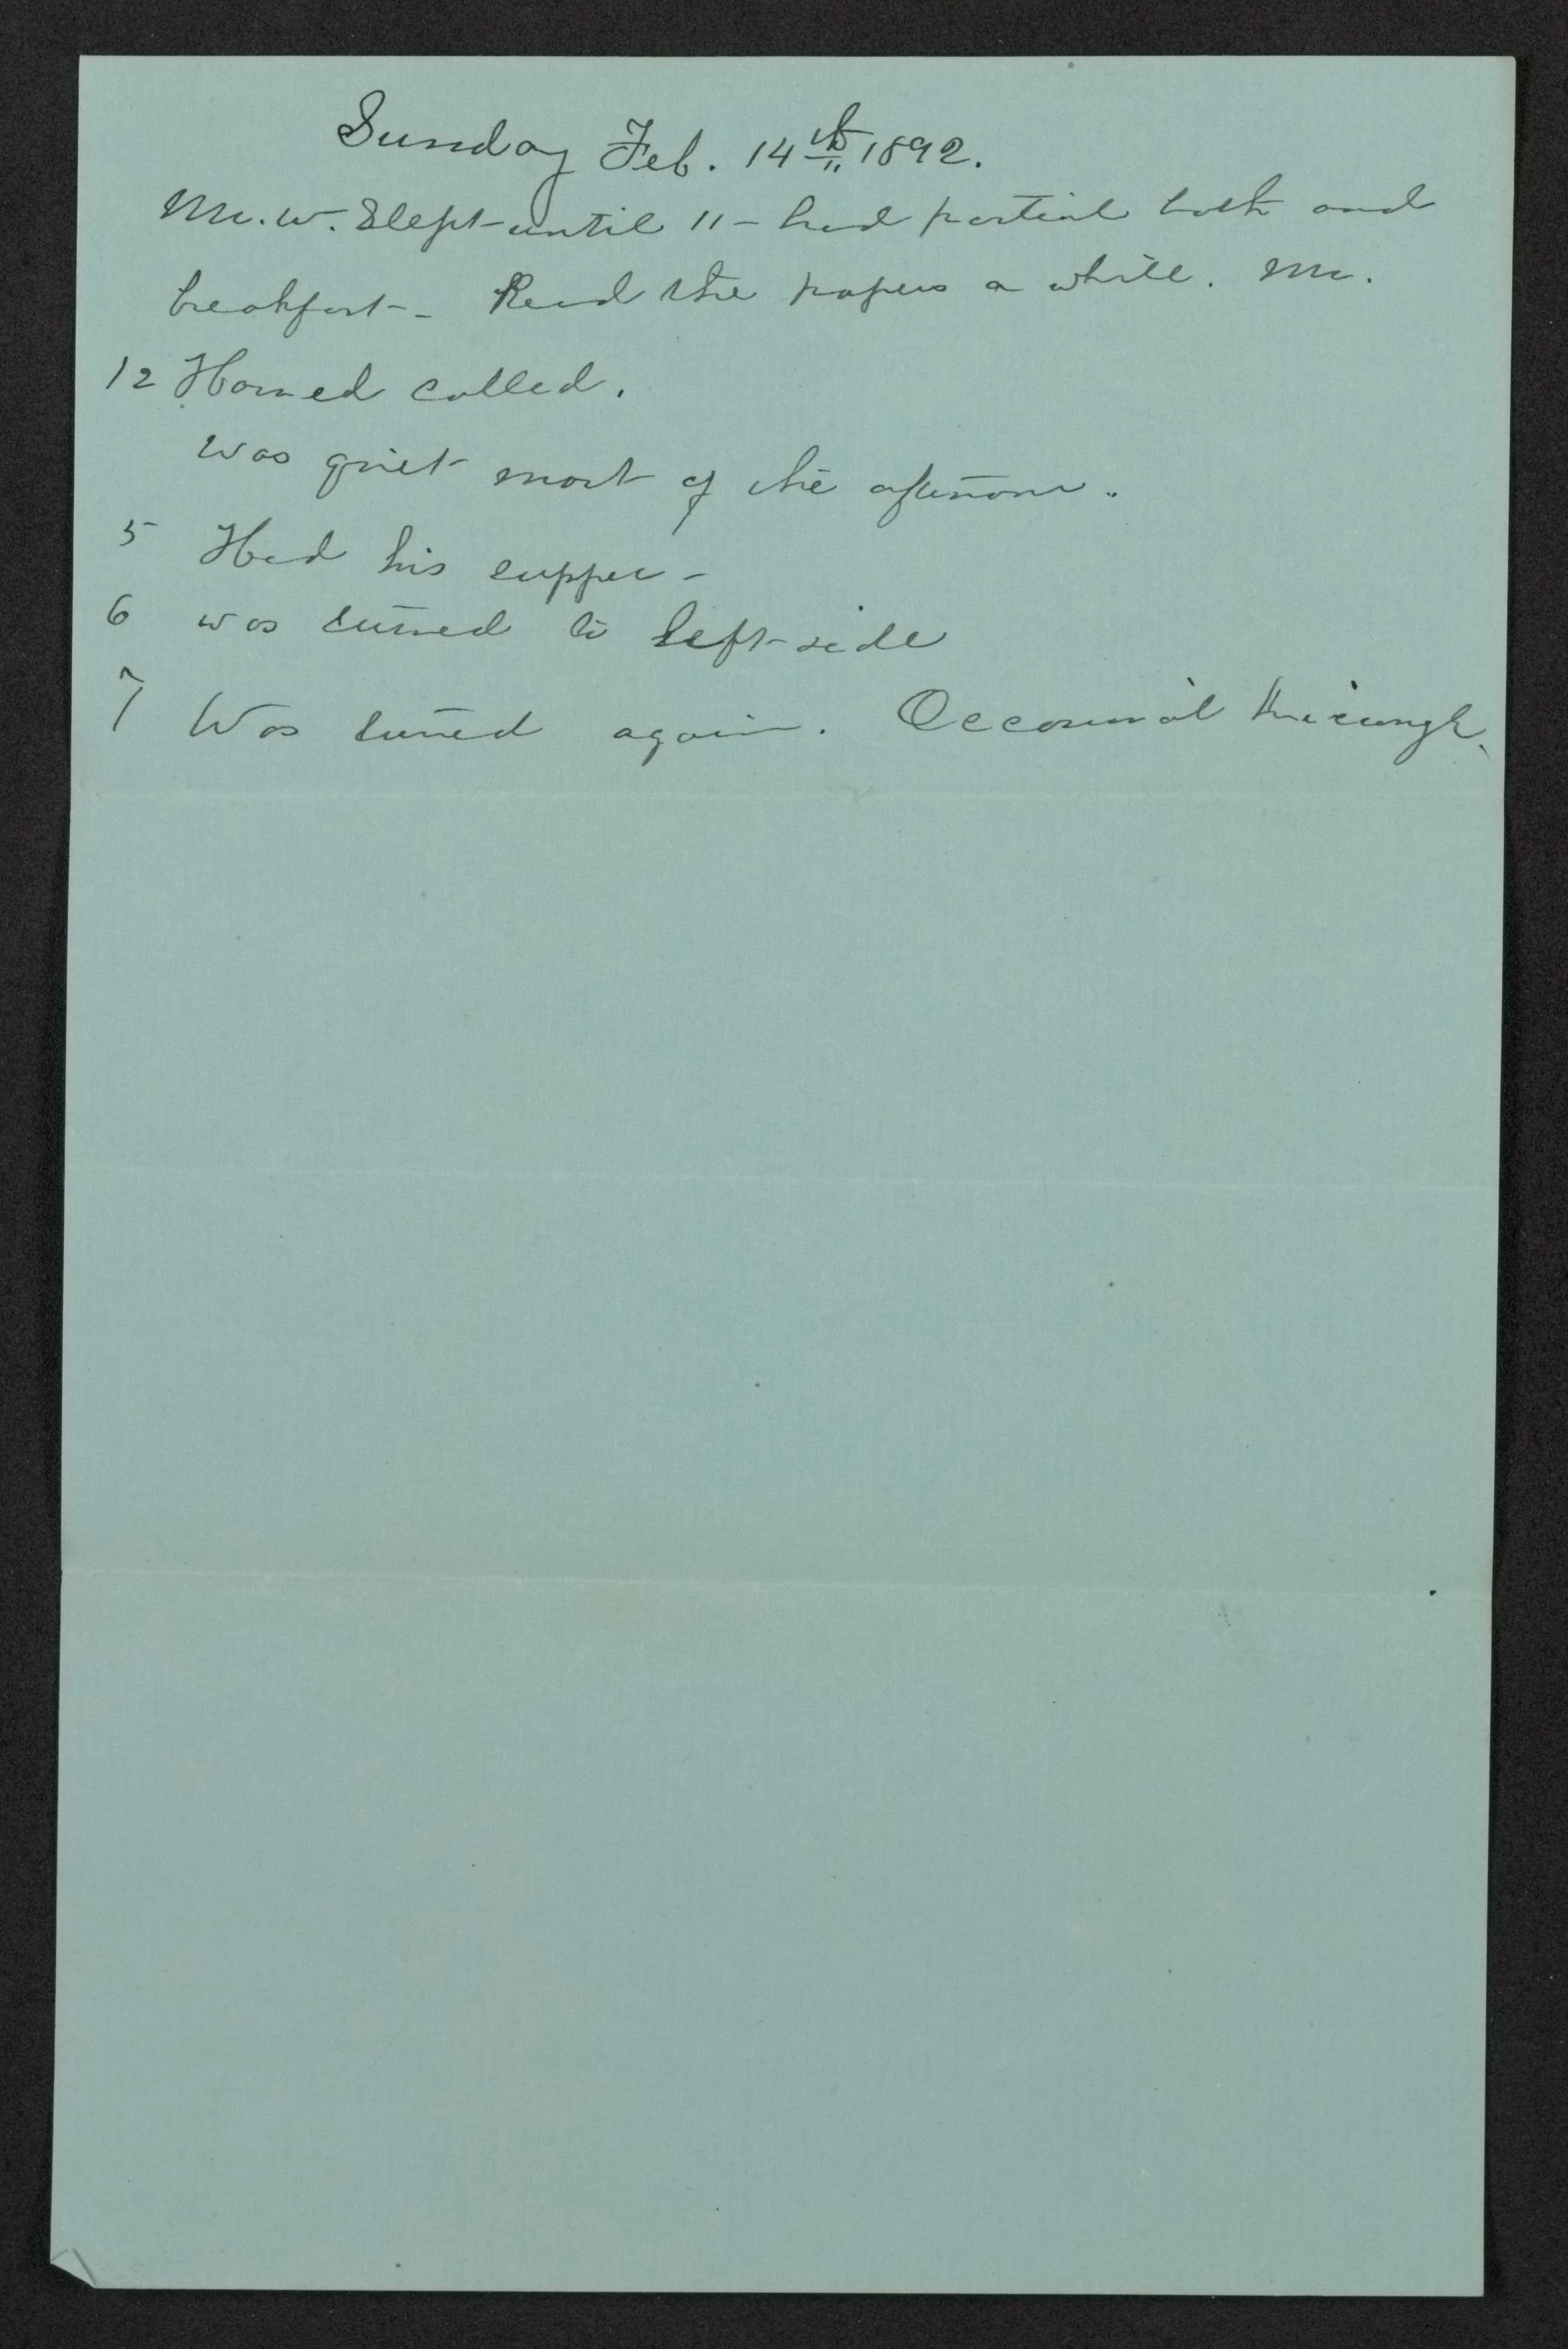 Sunday Feb. 14th 1892.
Mr. W. Slept until 11 – had partial bath and
breakfast – Read the papers a while. Mr.
12 Harned called.
Was quiet most of the afternoon.
5 Had his supper –
6 was turned to left side
7 Was turned again. Occasional